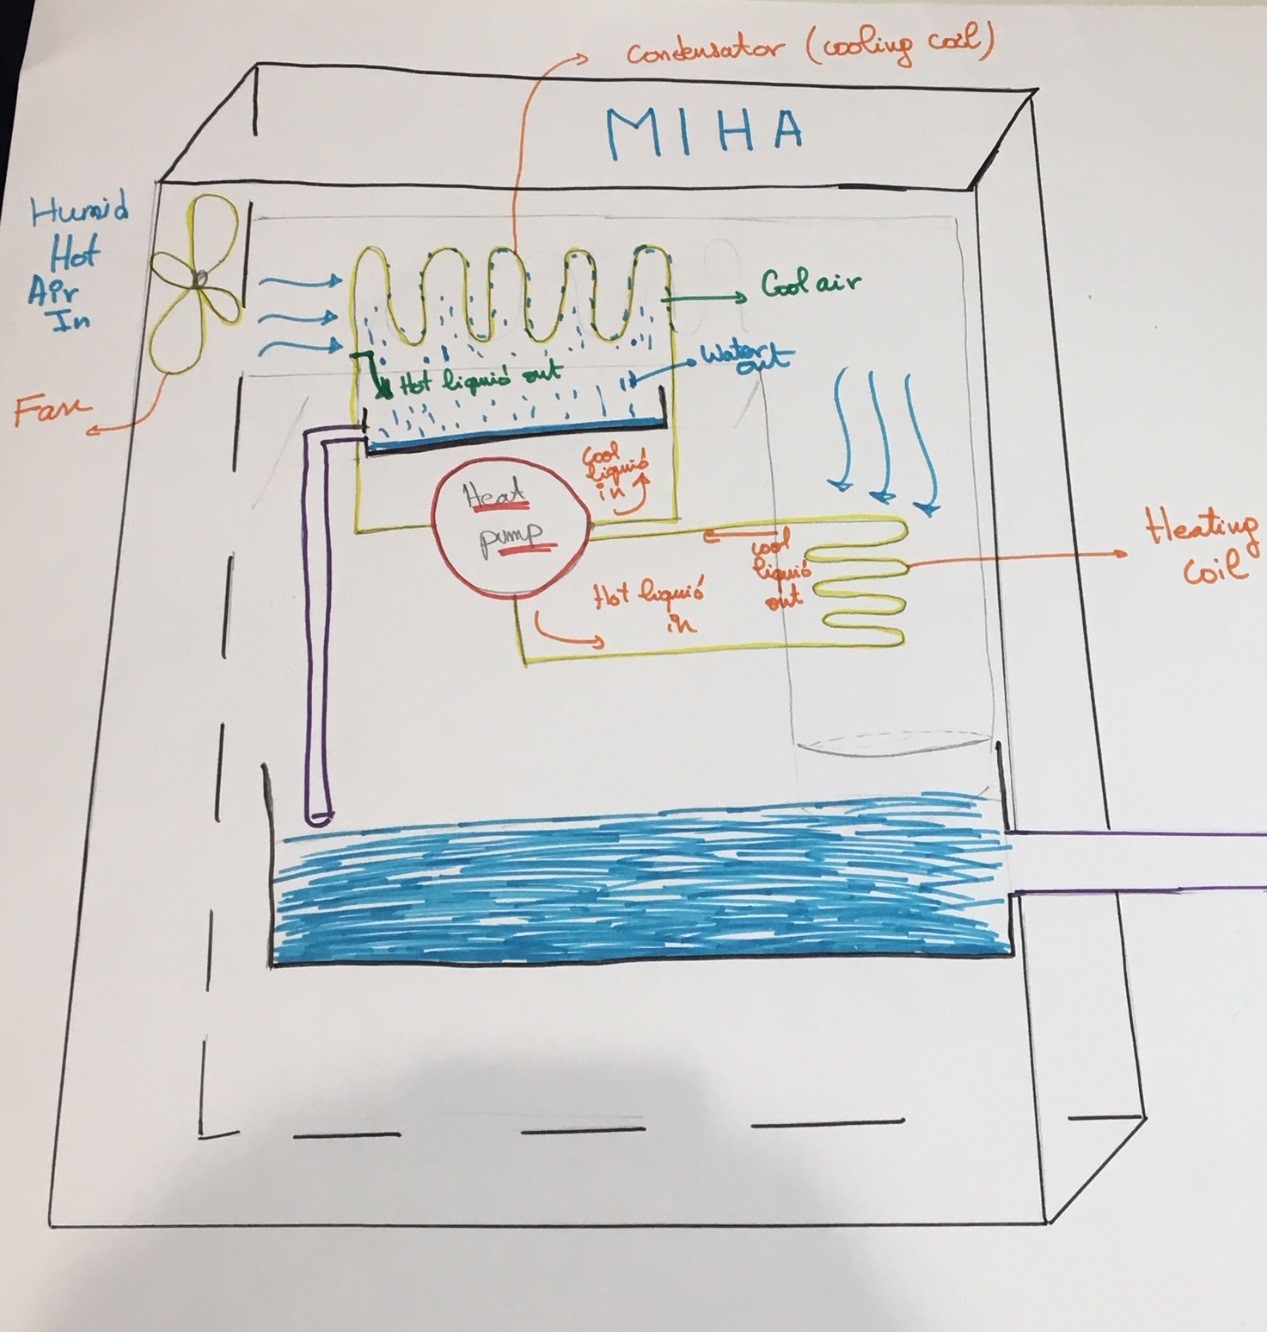 Condensator (cooling coil)
MIHA
Humid
Hot
Air
In
Fan
Cool air
Water
out
Hot liquid out
Cool
liquid
in
Heat
pump
cool
liquid
out
Hot liquid
in
Heating
coil